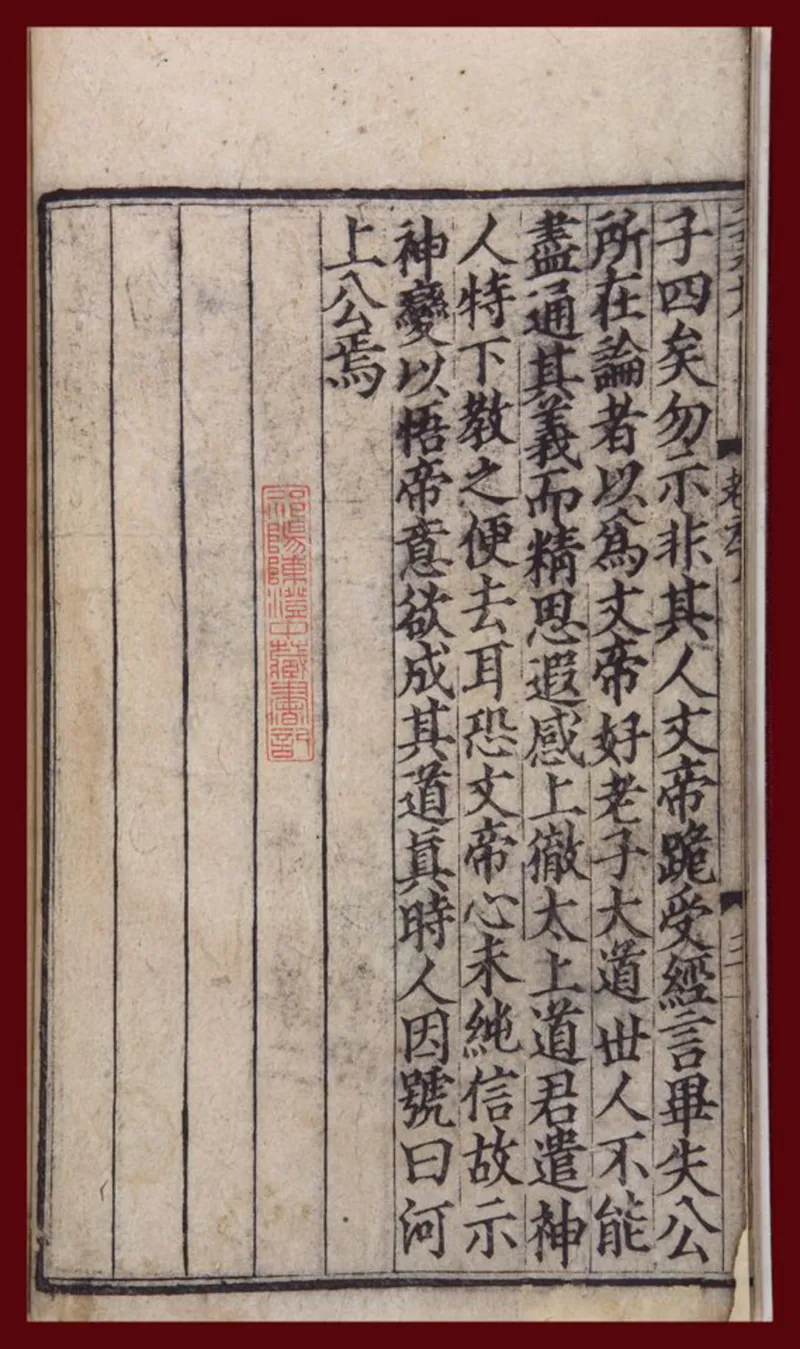 子四矣勿示非其人文帝跪受經言畢失公
所在論者以為文帝好老子大道世人不能
盡通其義而精思遐感上徹太上道君遣神
人特下教之便去耳恐文帝心未純信故示
神變以悟帝意欲成其道眞時人因號曰河
上公焉
祁陽陳澄中藏書記